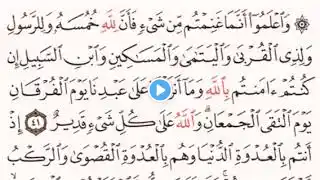 ۞ وَٱعۡلَمُوٓاْ أَنَّمَا غَنِمۡتُم مِّن شَيۡءٖ فَأَنَّ لِلَّهِ خُمُسَهُۥ وَلِلرَّسُولِ
وَلِذِي ٱلۡقُرۡبَىٰ وَٱلۡيَتَٰمَىٰ وَٱلۡمَسَٰكِينِ وَٱبۡنِ ٱلسَّبِيلِ إِن
كُنتُمۡ ءَامَنتُم بِٱللَّهِ وَمَآ عَلَىٰ عَبۡدِنَا يَوۡمَ ٱلۡفُرۡقَانِ
يَوۡمَ ٱلۡتَقَى ٱلۡجَمۡعَانِۗ وَٱللَّهُ عَلَىٰ كُلِّ شَيۡءٖ قَدِيرٌ ٤١ إِذۡ
أَنتُم بِٱلۡعُدۡوَةِ ٱلدُّنۡيَا وَهُم بِٱلۡعُدۡوَةِ ٱلۡقُصۡوَىٰ وَٱلرَّكۡبُ